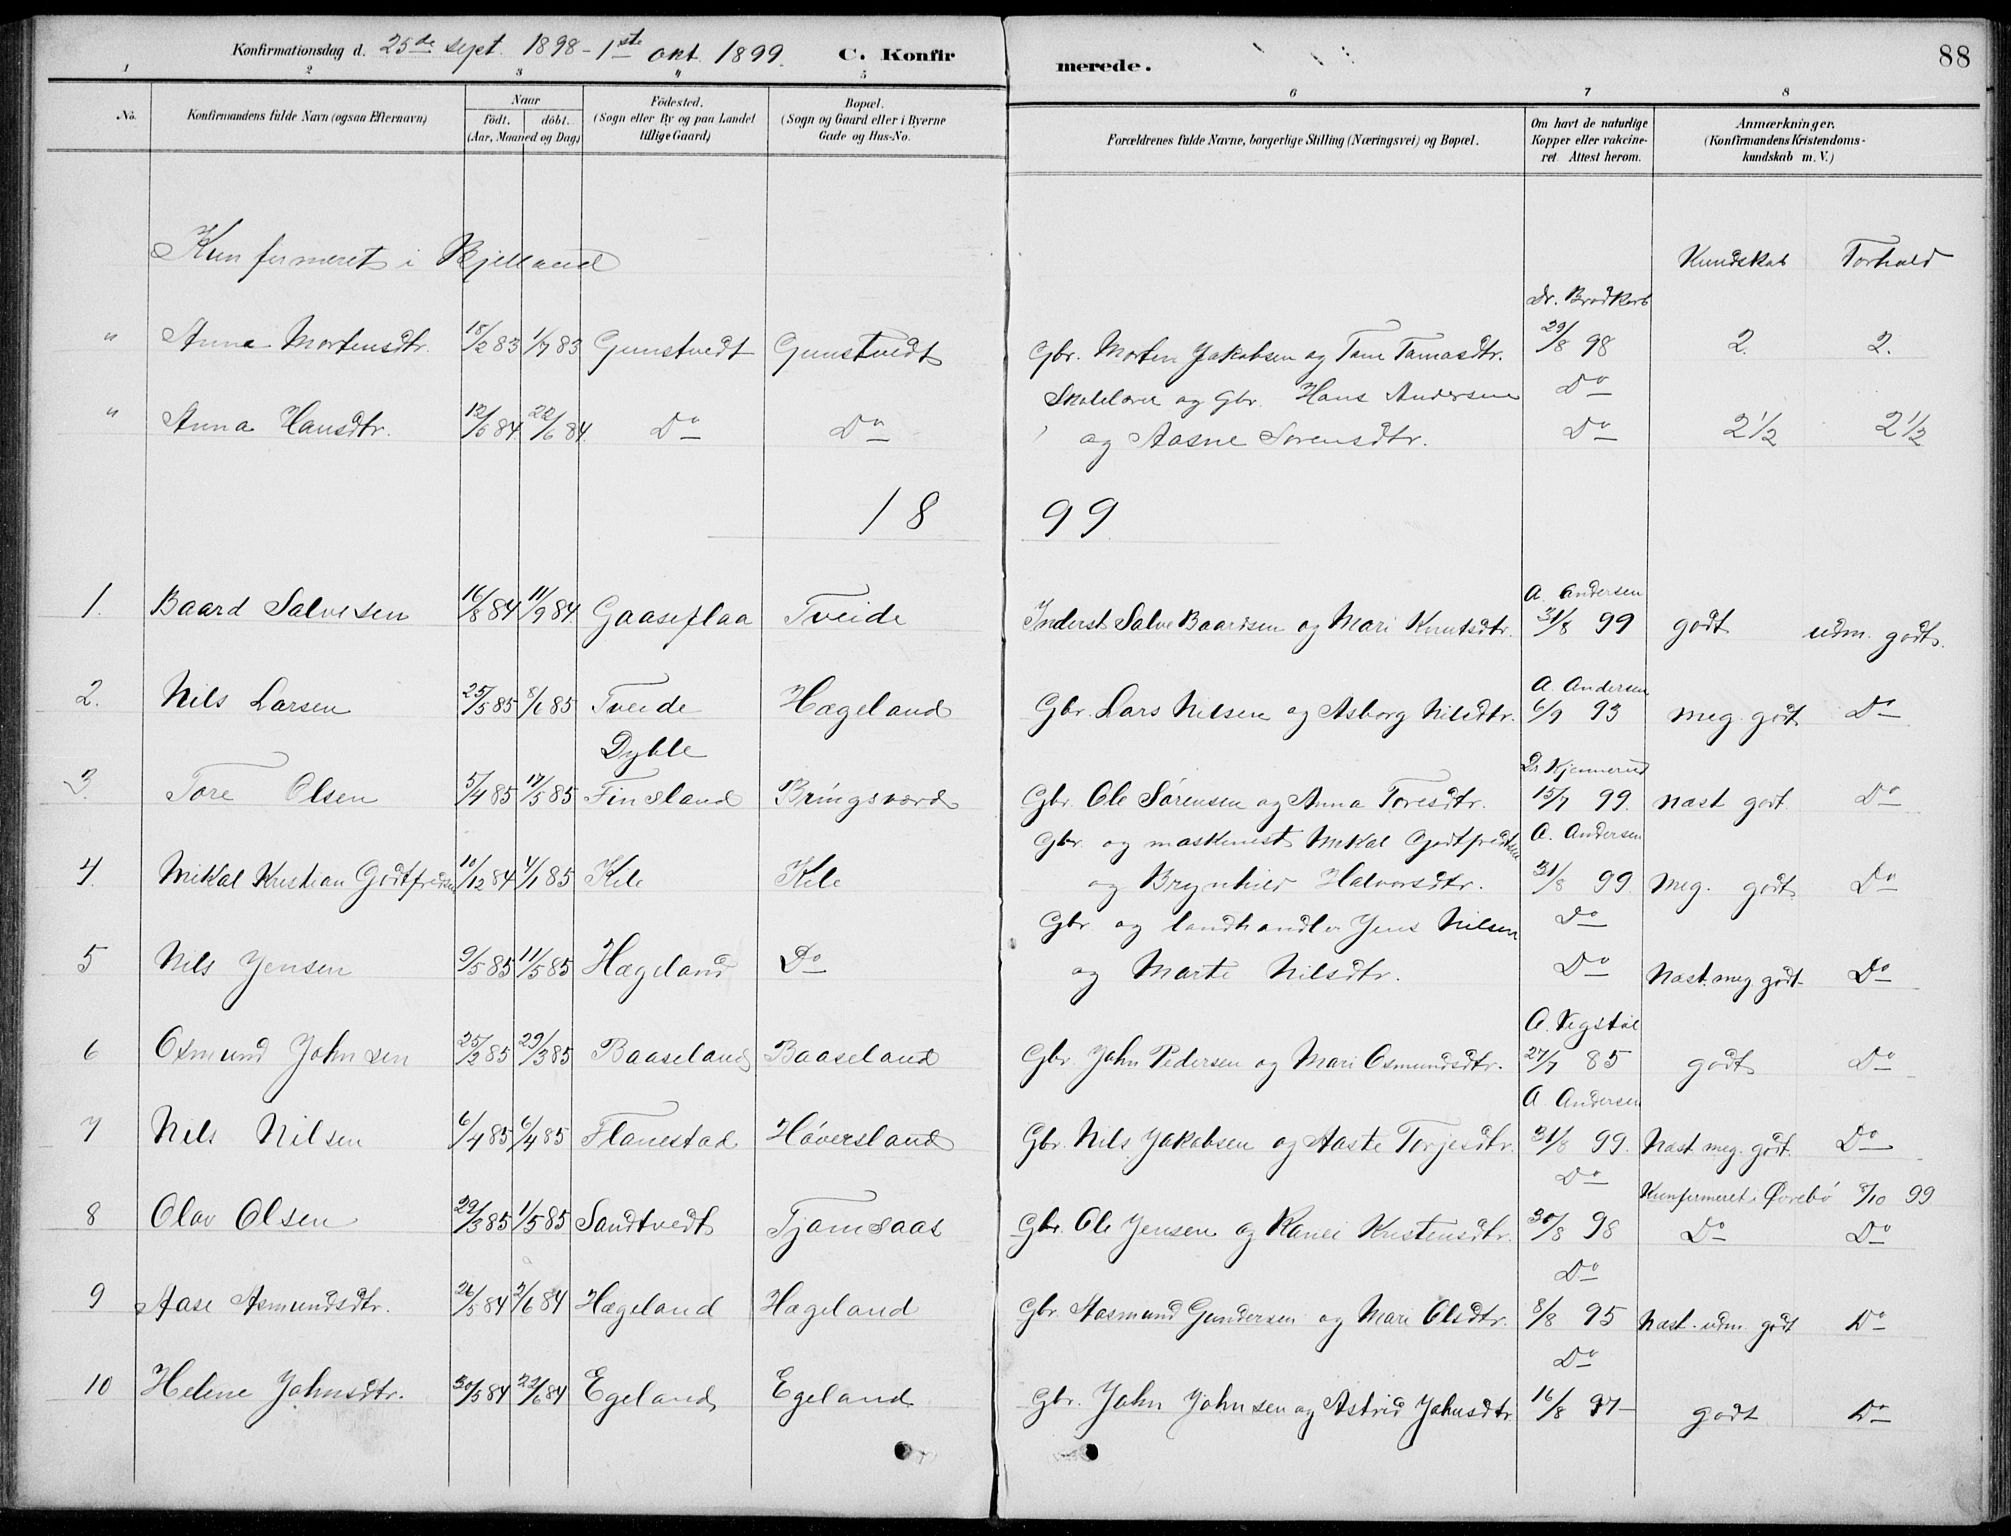 Konfirmationsdag d. 25de sept. 1898 - 1ste okt. 1899. C. Konfirmerede. 88
1 2 3 4 5 6 7 8
No. Konfirmandens fulde Navn (ogsaa Efternavn) Naar födt. döbt. (Aar, Maaned og Dag) Födested. (Sogn eller By og paa Landet tillige Gaard) Bopæl. (Sogn og Gaard eller i Byerne Gade og Hus-No. Forældrenes fulde Navne, borgerlige Stilling (Næringsvei) og Bopæl. Om havt de naturlige Kopper eller vakcineret Attest herom. Anmærkninger. (Konfirmandens Kristendomskundskab m. V.)
Kunfermeret i Bjelland Kundskab Forhold
Dr. Brodkorb
" Anna Mortensdtr. 18/2 83 1/7 83 Gunstvedt Gunstvedt Gbr. Morten Jakobsen og Tone Tomasdtr. 29/8 98 2. 2.
Skolelærer og Gbr. Hans Andersen Do
" Anna Hansdtr. 12/5 84 22/6 84 Do Do og Aasne Sørensdtr. Do 2 1/2 2 1/2
1899
A. Andersen
1. Baard Salvesen 16/8 84 11/9 84 Gaaseflaa Tveide Inderst Salve Baardsen og Mari Knutsdtr. 31/8 99 godt udm. godt.
A. Andersen
2. Nils Larsen 25/5 85 8/6 85 Tveide Hægeland Gbr. Lars Nilsen og Asborg Nilsdtr. 6/9 93 meg. godt Do
Dyble Dr Kjennerud
3 Tore Olsen 5/4 85 17/5 85 Finsland Bringsværd Gbr. Ole Sørensen og Anna Toresdtr. 15/7 99. næst godt Do
Gbr. og maskinist Mikal Godtfredsen A. Andersen
4. Mikal Kristian Godtfredsen 10/12 84 4/1 85 Kile Kile og Brynhild Halvorsdtr. 31/8 99. Meg. godt Do
Gbr. og landhandler Jens Nilsen Do
5 Nils Jensen 9/5 85 11/5 85 Hægeland Do og Marte Nilsdtr. Do Næst. meg godt. Do
A. Vegstøl
6 Osmund Johnsen 25/2 85 29/3 85 Baaseland Baaseland Gbr. John Pedersen og Mari Osmundsdtr. 27/7 85 godt Do
A. Andersen
7 Nils Nilsen 6/4 85 6/4 85 Flanestad Høversland Gbr. Nils Jakobsen og Aaste Torjesdtr. 31/8 99. Næst meg. godt. Do
Do Kunfermeret i Øvrebø 8/10 99
8 Olav Olsen 22/3 85 1/5 85 Sandtvedt Tjomsaas Gbr. Ole Jensen og Ranei Kristensdtr. 30/8 98 Do Do
Do
9 Aase Asmundsdtr. 26/5 84 2/6 84 Hægeland Hægeland Gbr. Aasmund Gundersen og Mari Olsdtr. 8/8 95 Næst. udm. godt Do
Do
10 Helene Johnsdtr. 30/5 84 22/6 84 Egeland Egeland Gbr. John Johnsen og Astrid Johnsdtr 16/8 97 godt Do